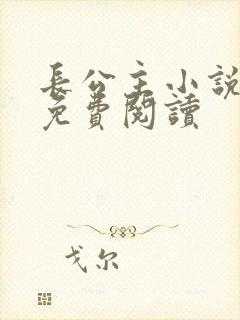 長公主小說
免費閱讀
戈尔